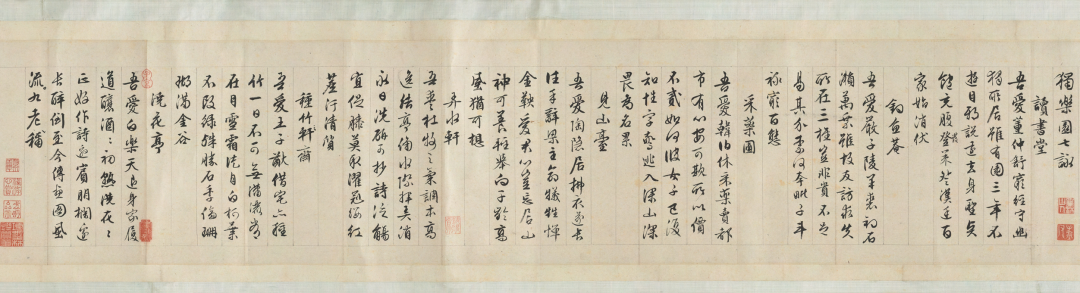 獨樂園七詠
讀書堂
吾愛董仲舒窮經守幽
獨所居雖有園三年不
遊目邪說遠去耳聖言
飽充腹發策登漢廷百
家始消伏
釣魚菴
吾愛嚴子陵羊裘釣石
瀨萬乘雖故友訪求失
所在三旌豈非貴不足
易其介奈何夸毗子斗
祿窮百態
采藥圃
吾愛韓伯休采藥賣都
市有心安可欺所以價
不貳如何彼女子已復
知姓字驚逃入深山深
畏名為累
見山臺
吾愛陶隱居拂衣遂長
往手辭梁主命犧牲憚
金鞅愛君心豈忘居山
神可養輕舉向千齡高
風猶可想
弄水軒
吾愛杜牧之氣調本高
逸結亭侵水際揮弄消
永日洗硯可抄詩泛觴
宜促膝莫取濯冠纓紅
塵污清質
種竹軒齋
吾愛王子猷借宅亦種
竹一日不可無瀟灑常
在目雪霜徒自白柯葉
不改綠殊勝石季倫珊
瑚滿金谷
澆花亭
吾愛白樂天退身家履
道釀酒酒初熟澆花花
正好作詩邀賓朋欄邊
長醉倒至今傳畫圖風
流九老稱